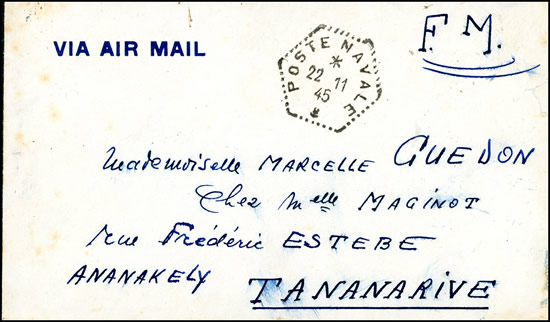 VIA AIR MAIL
POSTE NAVALE
*
22 11
45
*
F.M.
Mademoiselle MARCELLE GUEDON
Chez Melle MAGINOT
Rue Frédéric ESTEBE
ANANAKELY
TANANARIVE